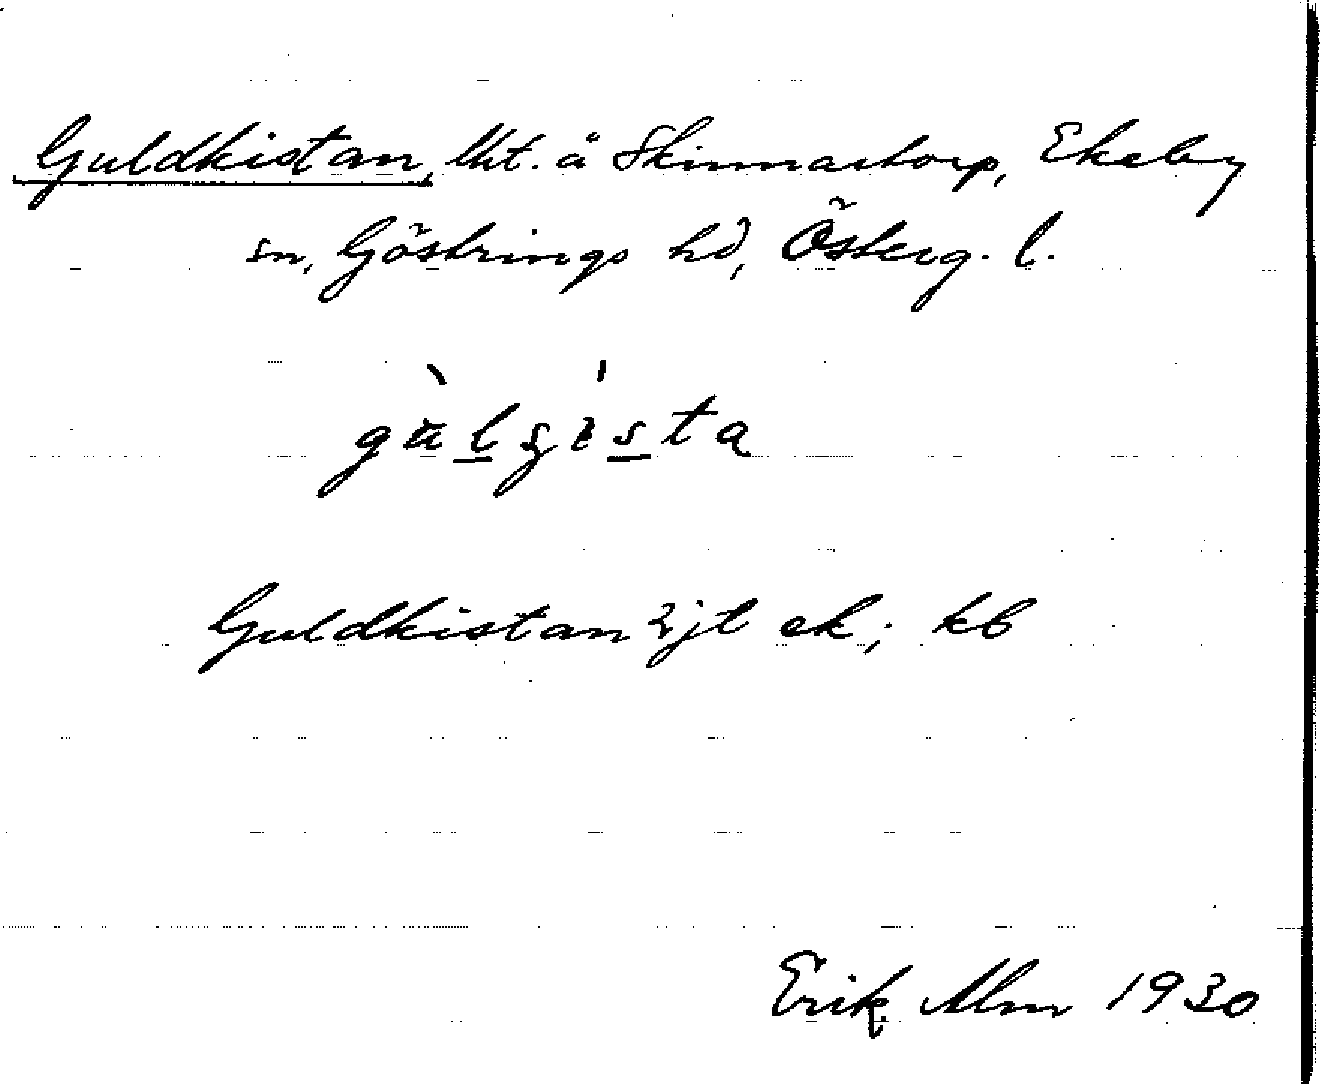 Guldkistan, lht. å Skinnarstorp, Ekeby
sn, Göstrings hd, Österg. l.
Guldkistan ek; kb
Erik Alm 1930